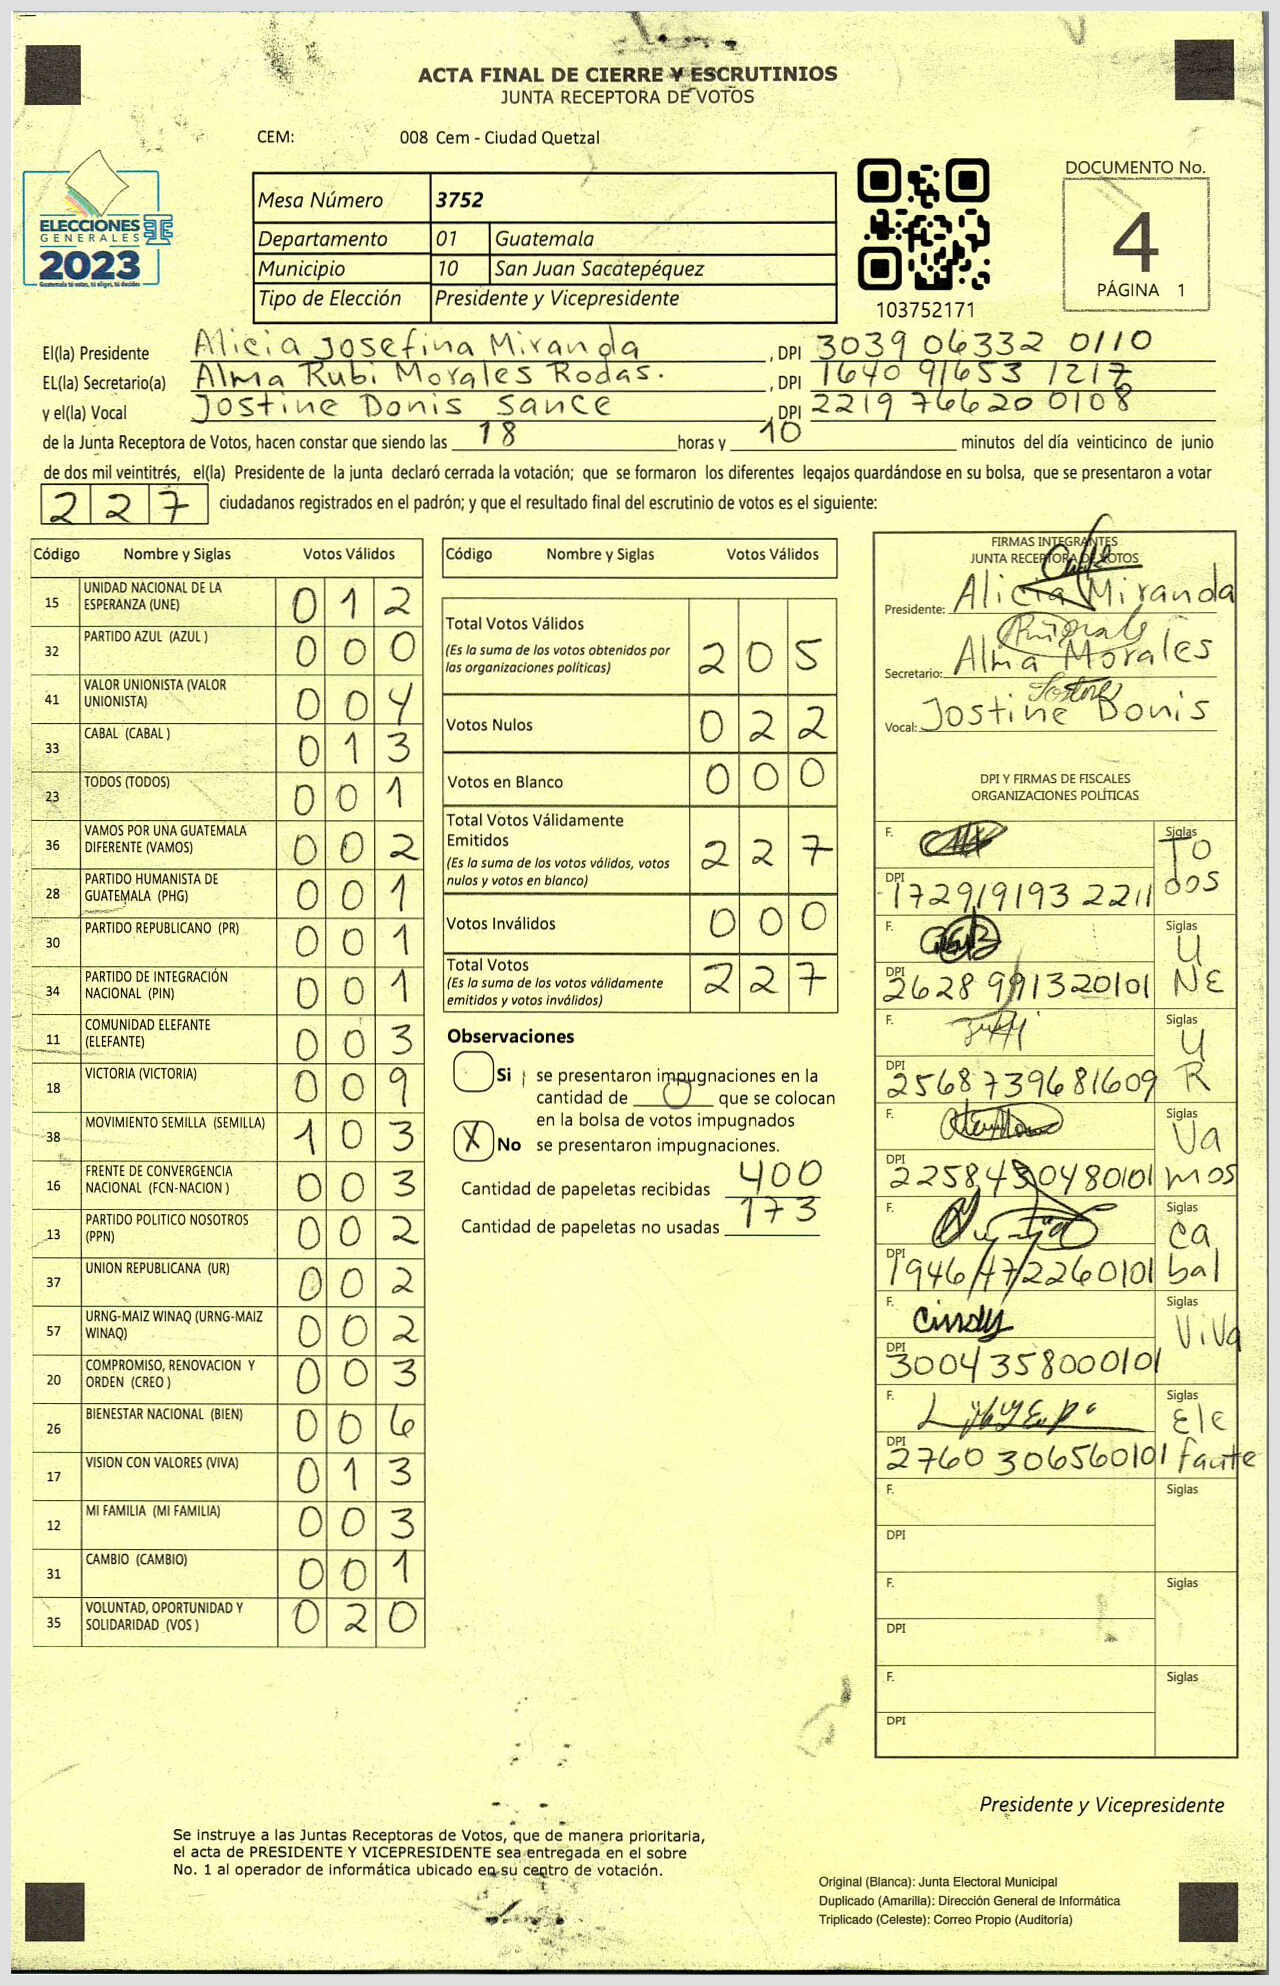 ACTA FINAL DE CIERRE Y ESCRUTINIOS
JUNTA RECEPTORA DE VOTOS
CEM: 008 Cem - Ciudad Quetzal
ELECCIONES
GENERALES
2023
Guatemala tú votas, tú eliges, tú decides
Mesa Número 3752
Departamento 01 Guatemala
Municipio 10 San Juan Sacatepéquez
Tipo de Elección Presidente y Vicepresidente
103752171
DOCUMENTO No.
4
PÁGINA 1
El(la) Presidente Alicia Josefina Miranda , DPI 3039 06332 0110
EL(la) Secretario(a) Alma Rubi Morales Rodas. , DPI 1640 91653 1217
y el(la) Vocal Jostine Donis Sance , DPI 2219 76620 0108
de la Junta Receptora de Votos, hacen constar que siendo las 18 horas y 10 minutos del día veinticinco de junio
de dos mil veintitrés, el(la) Presidente de la junta declaró cerrada la votación; que se formaron los diferentes legajos guardándose en su bolsa, que se presentaron a votar
227 ciudadanos registrados en el padrón; y que el resultado final del escrutinio de votos es el siguiente:
Código Nombre y Siglas Votos Válidos
15 UNIDAD NACIONAL DE LA ESPERANZA (UNE) 012
32 PARTIDO AZUL (AZUL ) 000
41 VALOR UNIONISTA (VALOR UNIONISTA) 004
33 CABAL (CABAL ) 013
23 TODOS (TODOS) 001
36 VAMOS POR UNA GUATEMALA DIFERENTE (VAMOS) 002
28 PARTIDO HUMANISTA DE GUATEMALA (PHG) 001
30 PARTIDO REPUBLICANO (PR) 001
34 PARTIDO DE INTEGRACIÓN NACIONAL (PIN) 001
11 COMUNIDAD ELEFANTE (ELEFANTE) 003
18 VICTORIA (VICTORIA) 009
38 MOVIMIENTO SEMILLA (SEMILLA) 103
16 FRENTE DE CONVERGENCIA NACIONAL (FCN-NACION ) 003
13 PARTIDO POLITICO NOSOTROS (PPN) 002
37 UNION REPUBLICANA (UR) 002
57 URNG-MAIZ WINAQ (URNG-MAIZ WINAQ) 002
20 COMPROMISO, RENOVACION Y ORDEN (CREO ) 003
26 BIENESTAR NACIONAL (BIEN) 006
17 VISION CON VALORES (VIVA) 013
12 MI FAMILIA (MI FAMILIA) 003
31 CAMBIO (CAMBIO) 001
35 VOLUNTAD, OPORTUNIDAD Y SOLIDARIDAD (VOS ) 020
Código Nombre y Siglas Votos Válidos
Total Votos Válidos 205
(Es la suma de los votos obtenidos por
las organizaciones políticas)
Votos Nulos 022
Votos en Blanco 000
Total Votos Válidamente
Emitidos 227
(Es la suma de los votos válidos, votos
nulos y votos en blanco)
Votos Inválidos 000
Total Votos 227
(Es la suma de los votos válidamente
emitidos y votos inválidos)
Observaciones
Si se presentaron impugnaciones en la
cantidad de 0 que se colocan
en la bolsa de votos impugnados
X No se presentaron impugnaciones.
Cantidad de papeletas recibidas 400
Cantidad de papeletas no usadas 173
FIRMAS INTEGRANTES
JUNTA RECEPTORA DE VOTOS
Presidente: Alicia Miranda
Secretario: Alma Morales
Vocal: Jostine Donis
DPI Y FIRMAS DE FISCALES
ORGANIZACIONES POLÍTICAS
F. Siglas Todos
DPI 172919193 2211
F. Siglas UNE
DPI 2628 991320101
F. Siglas UR
DPI 2568739681609
F. Siglas Vamos
DPI 2258430480101
F. Siglas Cabal
DPI 1946472260101
F. Cindy Siglas ViVa
DPI 3004358000101
F. Siglas Elefante
DPI 2760306560101
F. Siglas
DPI
F. Siglas
DPI
F. Siglas
DPI
Presidente y Vicepresidente
Se instruye a las Juntas Receptoras de Votos, que de manera prioritaria,
el acta de PRESIDENTE Y VICEPRESIDENTE sea entregada en el sobre
No. 1 al operador de informática ubicado en su centro de votación.
Original (Blanca): Junta Electoral Municipal
Duplicado (Amarilla): Dirección General de Informática
Triplicado (Celeste): Correo Propio (Auditoría)